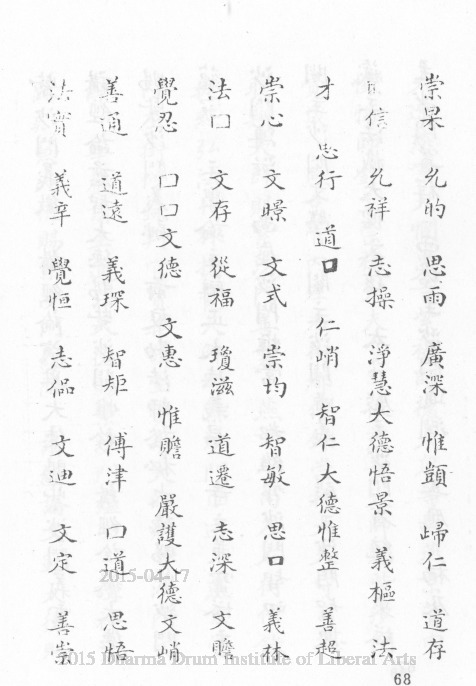 崇杲 允的 思雨 廣深 惟顗 歸仁 道存
信 允祥 志操 淨慧大德悟景 義樞 法
才 忠行 道口 仁峭 智仁大德惟整 善超
崇心 文暻 文式 崇均 智敏 思口 義林
法口 文存 從福 瓊滋 道遷 志深 文贍
覺忍 口口文德 文惠 惟贍 嚴護大德文峭
善通 道遠 義琛 智矩 傅津 口道 思悟
法實 義幸 覺恒 志偘 文迪 文定 善崇
2015-04-17
2015 Dharma Drum Institute of Liberal Arts
68